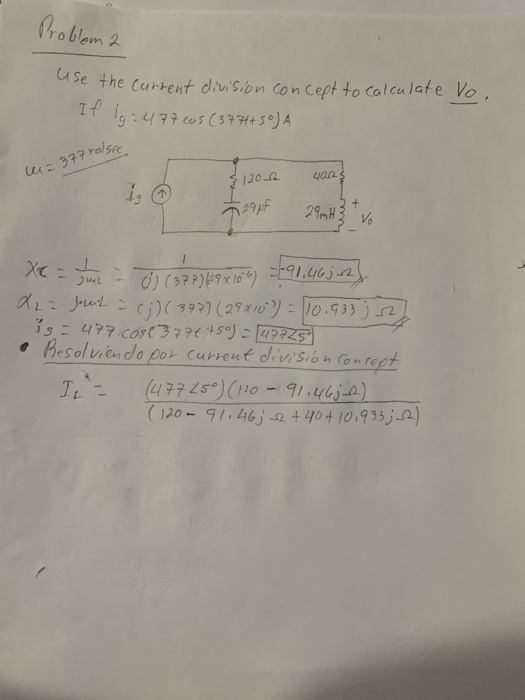 Problem 2
Use the current division concept to calculate Vo.
If ig = 477 cos (377t+5°) A
w = 377 rad/sec
ig
120Ω
29μF
40Ω
29mH
+
Vo
-
Xc = 1/jwc = 1/((j)(377)(29x10⁻⁶)) = -91.46j Ω
XL = jwL = (j)(377)(29x10⁻³) = 10.933j Ω
ig = 477 cos(377t+5°) = 477∠5°
• Resolviendo por current division concept
IL = (477∠5°)(120 - 91.46j Ω)
(120 - 91.46j Ω + 40 + 10.933j Ω)